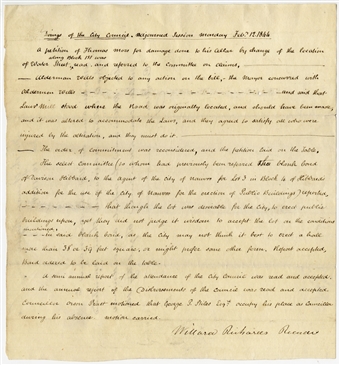 Doings of the City Council. Adjourned Session Monday Feby. 12. 1844
A petition of Thomas Moss for damage done to his Cellar by change of the location
along Block 155 was
of Water Street, read, and referred to the Committee on Claims,
— Alderman Wells objected to any action on the bill,— the Mayor concurred with
Alderman Wells and said that
Law's Mill stood where the Road was originally located, and should have been more,
and it was altered to accommodate the Laws, and they agreed to satisfy all who were
injured by the alteration, and they must do it.
— The order of commitment was reconsidered, and the petition laid on the Table.
The select Committee (to whom had previously been referred the bond
of Davison Hibbard, to the agent of the City of Nauvoo for Lot 3 in Block 4 of Hibbards
addition for the use of the City of Nauvoo for the erection of Public Buildings) reported,
that though the Lot was desirable for the City, to erect public
buildings upon, yet they did not judge it wisdom to accept the lot on the conditions
mentioned,
in said bond, as the City may not think it best to erect a hall
more than 38 or 34 feet square, or might prefer some other form. Report accepted,
Bond ordered to be laid on the table.
A semi annual report of the attendance of the City Council was read and accepted.
and the annual report of the Disbursements of the council was read and accepted.
Councillor Orson Pratt motioned that George P. Stiles Esqr. occupy his place as Councillor
during his absence. motion carried.
Willard Richards Recorder